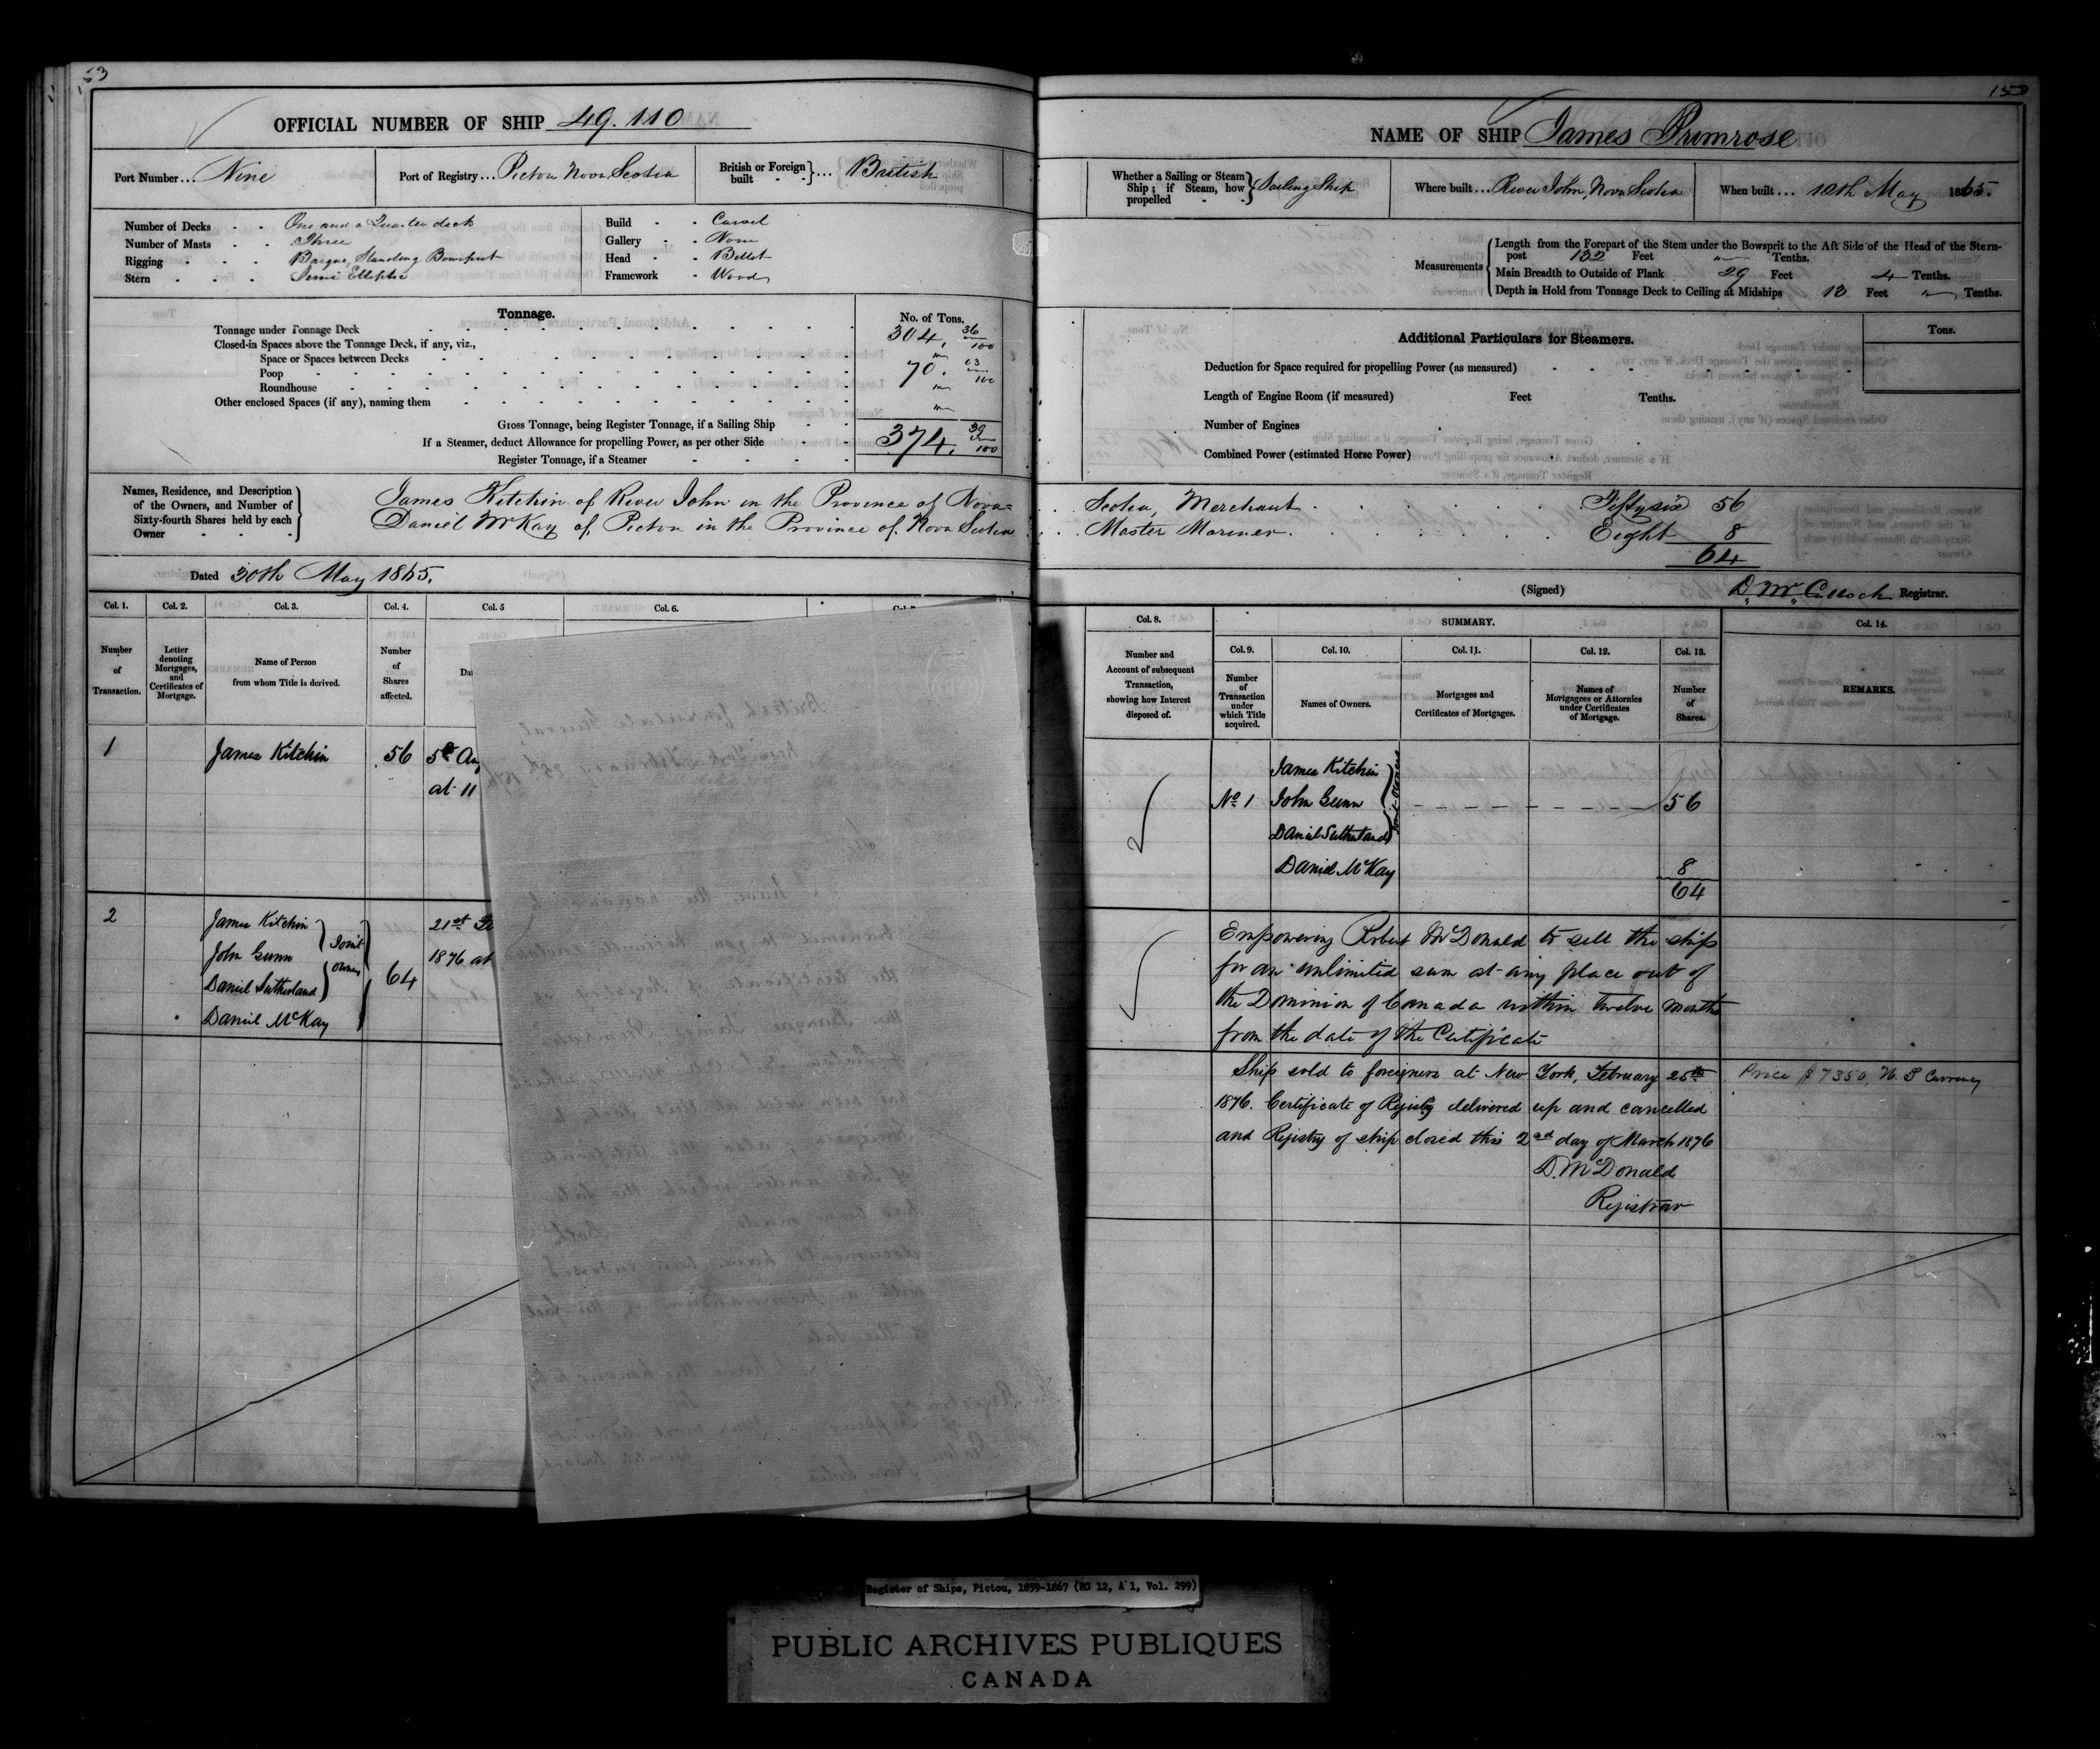 53
OFFICIAL NUMBER OF SHIP 49.110
Port Number... Nine
Port of Registry... Pictou Nova Scotia
British or Foreign built - - }... British
Number of Decks - - One and a Quarter deck
Number of Masts - - Three
Rigging - - - Barque, Standing Bowsprit
Stern - - - Semi Elliptic
Build - - Carvel
Gallery - - None
Head - - Billet
Framework - Wood
Tonnage.
No. of Tons.
Tonnage under Tonnage Deck 304, 36/100
Closed-in Spaces above the Tonnage Deck, if any, viz.,
Space or Spaces between Decks "
Poop 70. 03/100
Roundhouse "
Other enclosed Spaces (if any), naming them "
Gross Tonnage, being Register Tonnage, if a Sailing Ship
If a Steamer, deduct Allowance for propelling Power, as per other Side 374, 39/100
Register Tonnage, if a Steamer
Names, Residence, and Description of the Owners, and Number of Sixty-fourth Shares held by each Owner
James Kitchin of River John in the Province of Nova=
Daniel McKay of Pictou in the Province of Nova Scotia
Dated 30th May 1865.
Col. 1. Col. 2. Col. 3. Col. 4. Col. 5 Col. 6.
Number of Transaction.
Letter denoting Mortgages, and Certificates of Mortgage.
Name of Person from whom Title is derived.
Number of Shares affected.
1 James Kitchin 56 5th Aug
at 11
2 James Kitchin 21st
John Gunn Joint 1876 at
Daniel Sutherland Owners 64
Daniel McKay
153
NAME OF SHIP James Primrose
Whether a Sailing or Steam Ship; if Steam, how propelled - - } Sailing Ship
Where built... River John, Nova Scotia
When built... 10th May 1865.
Measurements
Length from the Forepart of the Stem under the Bowsprit to the Aft Side of the Head of the Stern-
post 132 Feet " Tenths.
Main Breadth to Outside of Plank 29 Feet 4 Tenths.
Depth in Hold from Tonnage Deck to Ceiling at Midships 13 Feet " Tenths.
Additional Particulars for Steamers.
Tons.
Deduction for Space required for propelling Power (as measured)
Length of Engine Room (if measured) Feet Tenths.
Number of Engines
Combined Power (estimated Horse Power)
Scotia, Merchant. Fifty six 56
Master Mariner. Eight 8
64
(Signed) D. McCulloch Registrar.
Col. 8. SUMMARY. Col. 14.
Col. 9. Col. 10. Col. 11. Col. 12. Col. 13.
Number and Account of subsequent Transaction, showing how Interest disposed of.
Number of Transaction under which Title acquired.
Names of Owners.
Mortgages and Certificates of Mortgages.
Names of Mortgagees or Attornies under Certificates of Mortgage.
Number of Shares.
REMARKS.
James Kitchin
No 1 John Gunn Joint Owners 56
Daniel Sutherland
Daniel McKay 8
64
Empowering Robert McDonald to sell the ship
for an unlimited sum at any place out of
the Dominion of Canada within twelve months
from the date of the Certificate
Ship sold to foreigners at New York, February 25th Price $7350, U.S Currency
1876. Certificate of Registry delivered up and cancelled
and Registry of ship closed this 2nd day of March 1876
D. McDonald
Registrar
Register of Ships, Pictou, 1859-1867 (RG 12, A 1, Vol. 299)
PUBLIC ARCHIVES PUBLIQUES
CANADA